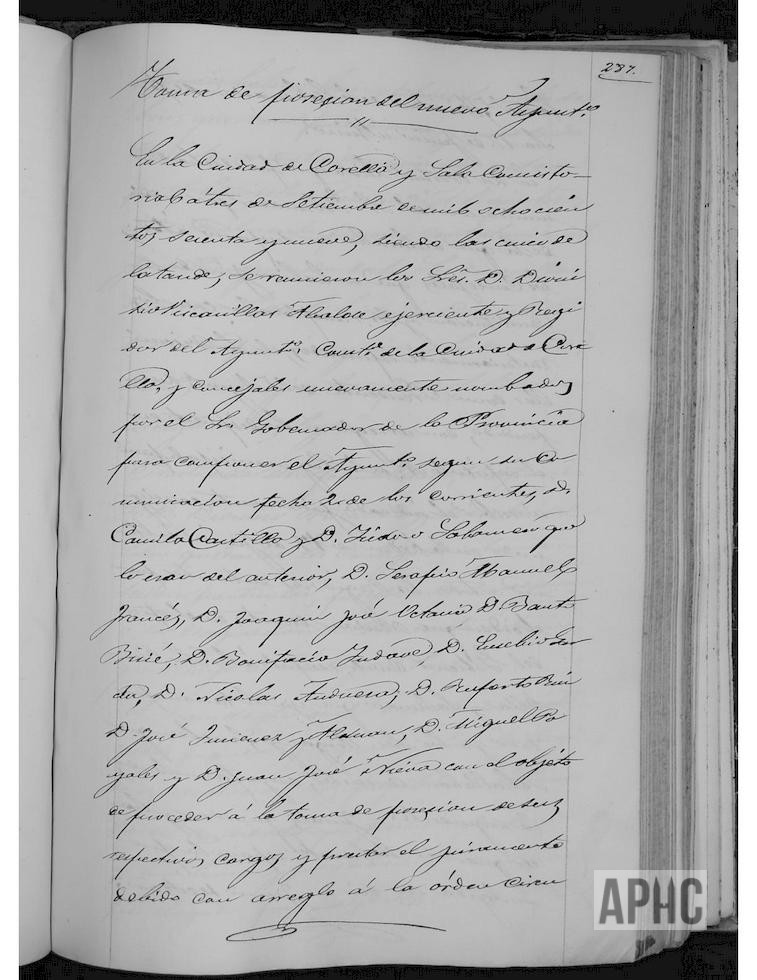 237.
Toma de posesion del nuevo Ayunt.o
En la Ciudad de Corella y Sala Consisto-
rial á tres de Setiembre de mil ochocien
tos sesenta y nueve, siendo las cinco de
la tarde, se reunieron los Sres. D. Dioni
sio Alcalde ejerciente y Regi
dor del Ayunt.o Const.l de la Ciudad de Core
lla, y concejales nuevamente nombados
por el Sr. Gobernador de la Provincia
para componer el Ayunt.o segun su co
municacion fecha 2 de los corrientes, D.
Camilo Castillo y D. Isidoro que
lo eran del anterior, D. Serapio Manuel
Francés, D. Joaquin José Octavio D. Banto
D. Bonifacio D. Eusebio
D. Nicolas D. Ruperto
D. José Jimenez y D. Miguel Po
yales y D. Juan José con el objeto
de proceder á la toma de posesion de sus
respectivos cargos y prestar el juramento
debido con arreglo á la órden Circu
APHC